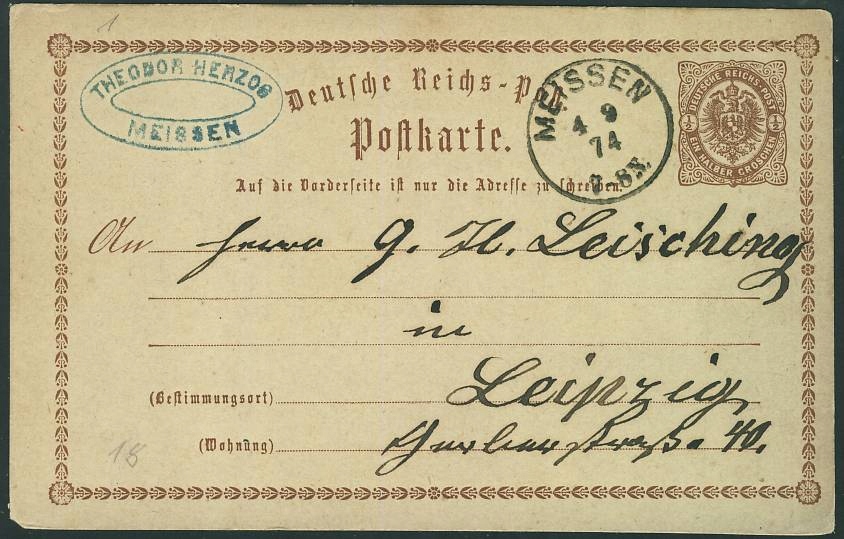 1
THEODOR HERZOG
MEISSEN
Deutsche Reichs-Post
Postkarte.
Auf die Vorderseite ist nur die Adresse zu schreiben.
MEISSEN
4 9
74
7-8N.
DEUTSCHE REICHS-POST
½ ½
EIN HALBER GROSCHEN
An Herrn G. H. Leisching
in
(Bestimmungsort) Leipzig
(Wohnung) Gerberstraße 40.
18